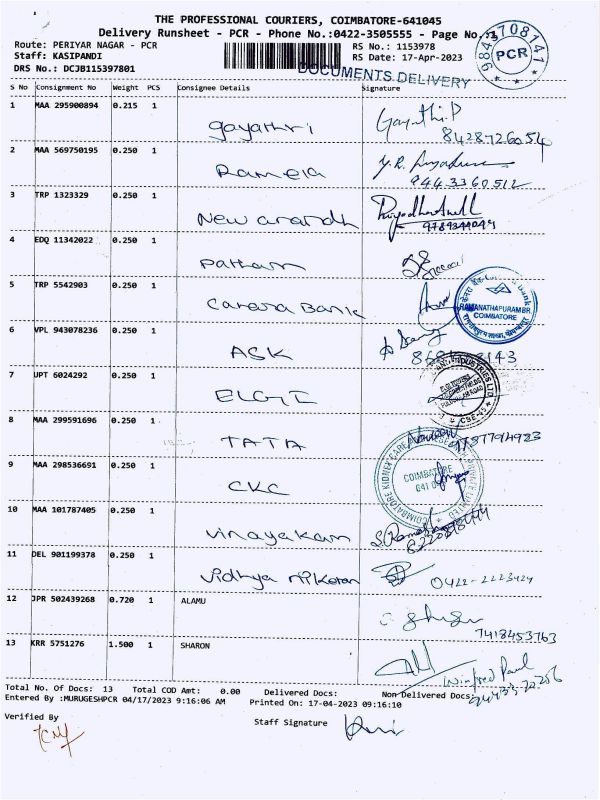 THE PROFESSIONAL COURIERS, COIMBATORE-641045
Delivery Runsheet - PCR - Phone No.:0422-3505555 - Page No.:1
Route: PERIYAR NAGAR - PCR
RS No.: 1153978
Staff: KASIPANDI
RS Date: 17-Apr-2023
DRS No.: DCJB115397801
DOCUMENTS DELIVERY
9843708141
PCR
S No Consignment No Weight PCS Consignee Details Signature
1 MAA 295900894 0.215 1 Gayathri Gayathri.P
8428726054
2 MAA 569750195 0.250 1 Ramela
9443360512
3 TRP 1323329 0.250 1 New anandh
9789344049
4 EDQ 11342022 0.250 1 Patham
5 TRP 5542903 0.250 1 Canara Bank
RAMANATHAPURAM BR.
COIMBATORE
6 VPL 943078236 0.250 1 ASK
7 UPT 6024292 0.250 1 ELGI
INDUSTRIES LTD
CBE-45
8 MAA 299591696 0.250 1 TATA
9 MAA 298536691 0.250 1 CKC
COIMBATORE KIDNEY CARE
PRIVATE LIMITED
COIMBATORE
10 MAA 101787405 0.250 1 Vinayakam
11 DEL 901199378 0.250 1 Vidhya niketan
0422-2223424
12 JPR 502439268 0.720 1 ALAMU
7418453763
13 KRR 5751276 1.500 1 SHARON
Winfred Paul
Total No. Of Docs: 13 Total COD Amt: 0.00 Delivered Docs: Non Delivered Docs:
Entered By :MURUGESHPCR 04/17/2023 9:16:06 AM Printed On: 17-04-2023 09:16:10
Verified By
Staff Signature